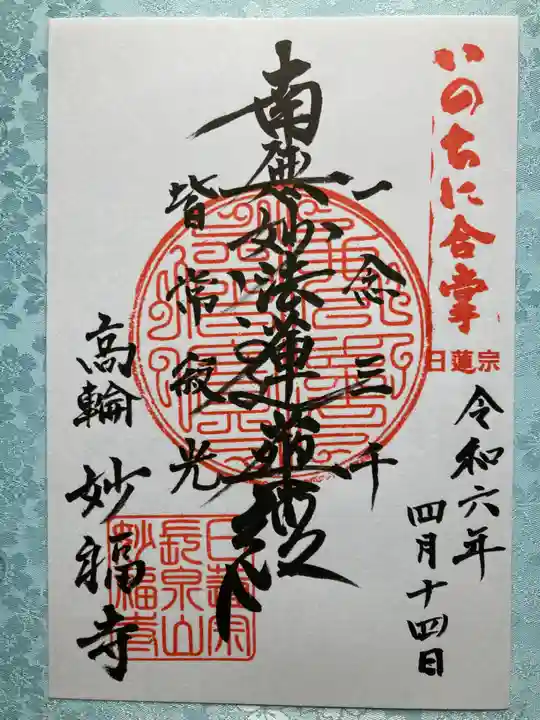 いのちに合掌
日蓮宗
令和六年
四月十四日
一念三千
南無妙法蓮華経
皆常寂光
高輪
妙福寺
日蓮宗
長泉山
妙福寺